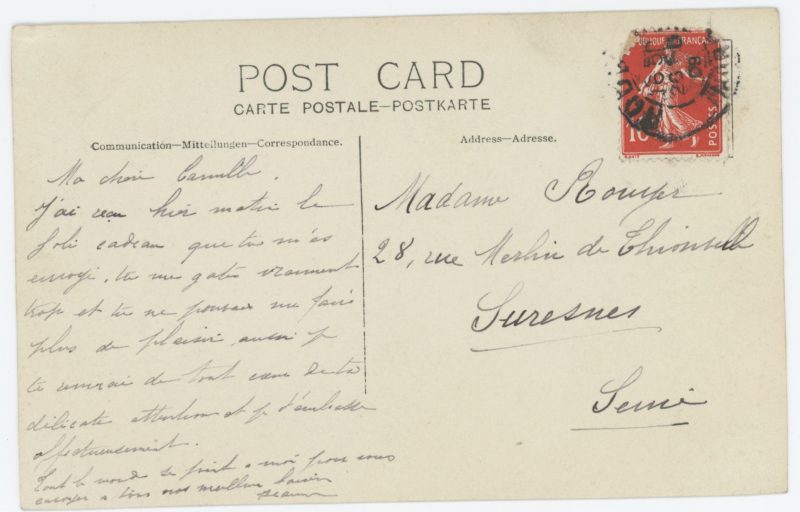 POST CARD
CARTE POSTALE—POSTKARTE
Communication—Mitteilungen—Correspondance.
Address—Adresse.
Ma chère Camille,
J'ai reçu hier matin le
joli cadeau que tu m'as
envoyé, tu me gates vraiment
trop et tu ne pouvais me faire
plus de plaisir, aussi je
te remercie de tout cœur de ta
délicate attention et je t'embrasse
affectueusement.
Tout le monde se joint a moi pour vous
envoyer a tous nos meilleurs baisers
Madame Rouyer
28, rue Merlin de Thionville
Suresnes
Seine
FRANÇAISE
10
POSTES